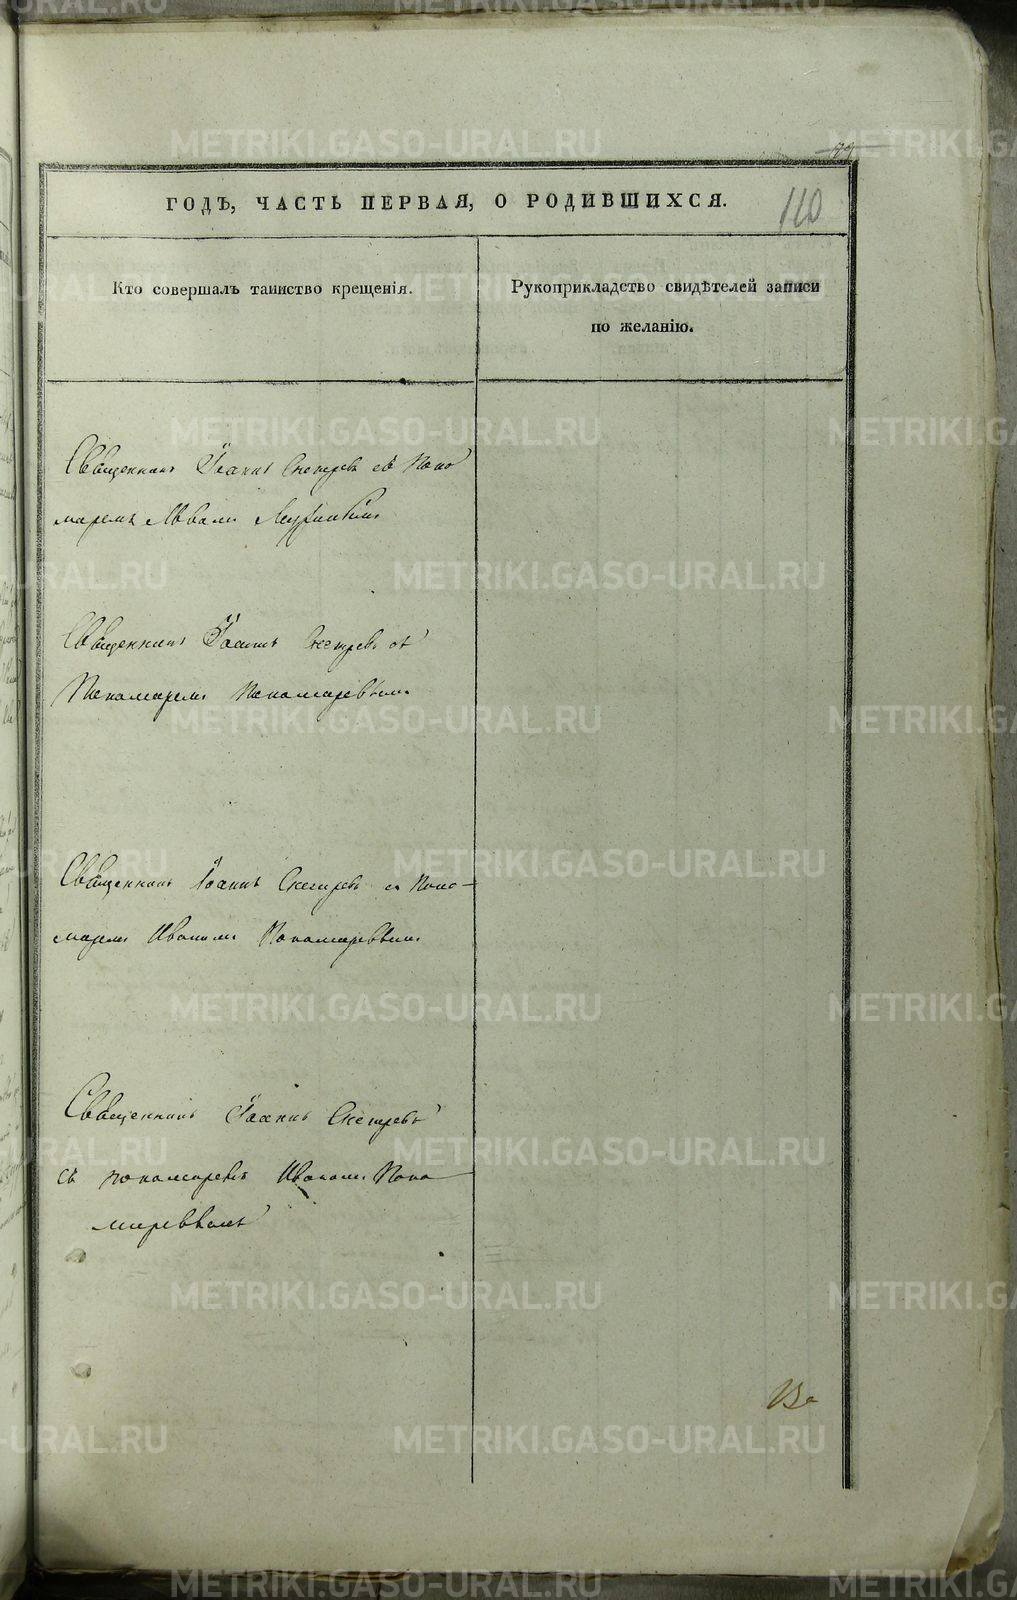 110
ГОДЪ, ЧАСТЬ ПЕРВАЯ, О РОДИВШИХСЯ.
Кто совершалъ таинство крещенія.
Рукоприкладство свидѣтелей записи
по желанію.
Священникъ Іоаннъ Снегирев съ Поно
маремъ
Священникъ Іоаннъ Снегирев съ
Пономарем Пономаревым
Священникъ Іоаннъ Снегирев съ Поно-
марем Иваном Пономаревым
Священникъ Іоаннъ Снегиревъ
съ пономаревъ Иваном Поно
маревымъ
METRIKI.GASO-URAL.RU